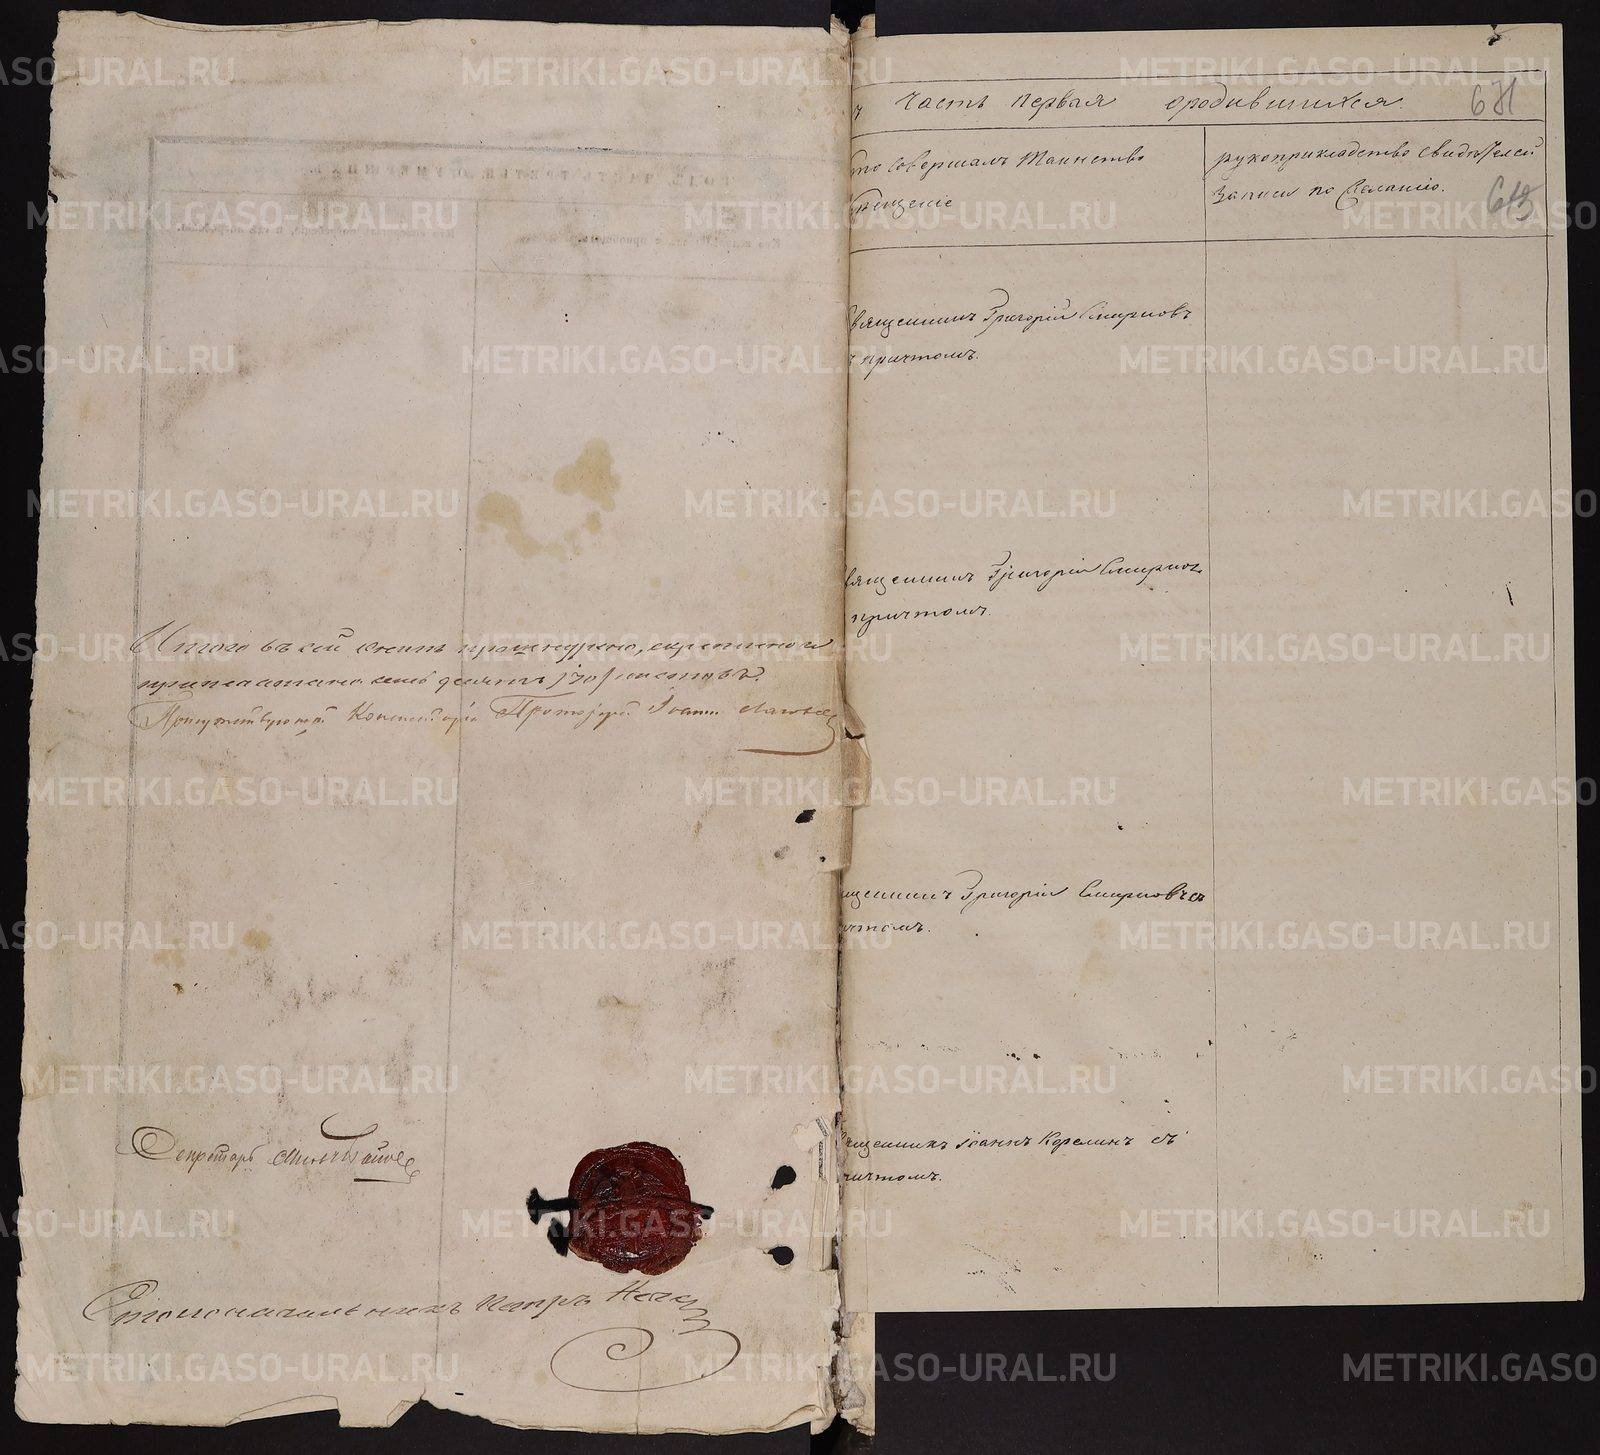 Итого въ сей книгѣ прошнурено, скреплено и
припечатано семьдесятъ /70/ листовъ.
Присутствующій Консисторіи Протоіерей Іоаннъ
Секретарь
Столоначальникъ Петръ
часть первая о родившихся. 671
то совершалъ Таинство
Крещеніе
рукоприкладство свидѣтелей
записи по желанію. 613
Священникъ Григорій Смирновъ
съ причтомъ.
Священникъ Григорій Смирновъ
причтомъ.
щенникъ Григорій Смирновъ съ
чтомъ.
ященникъ Іоаннъ Корелинъ съ
ичтомъ.
METRIKI.GASO-URAL.RU